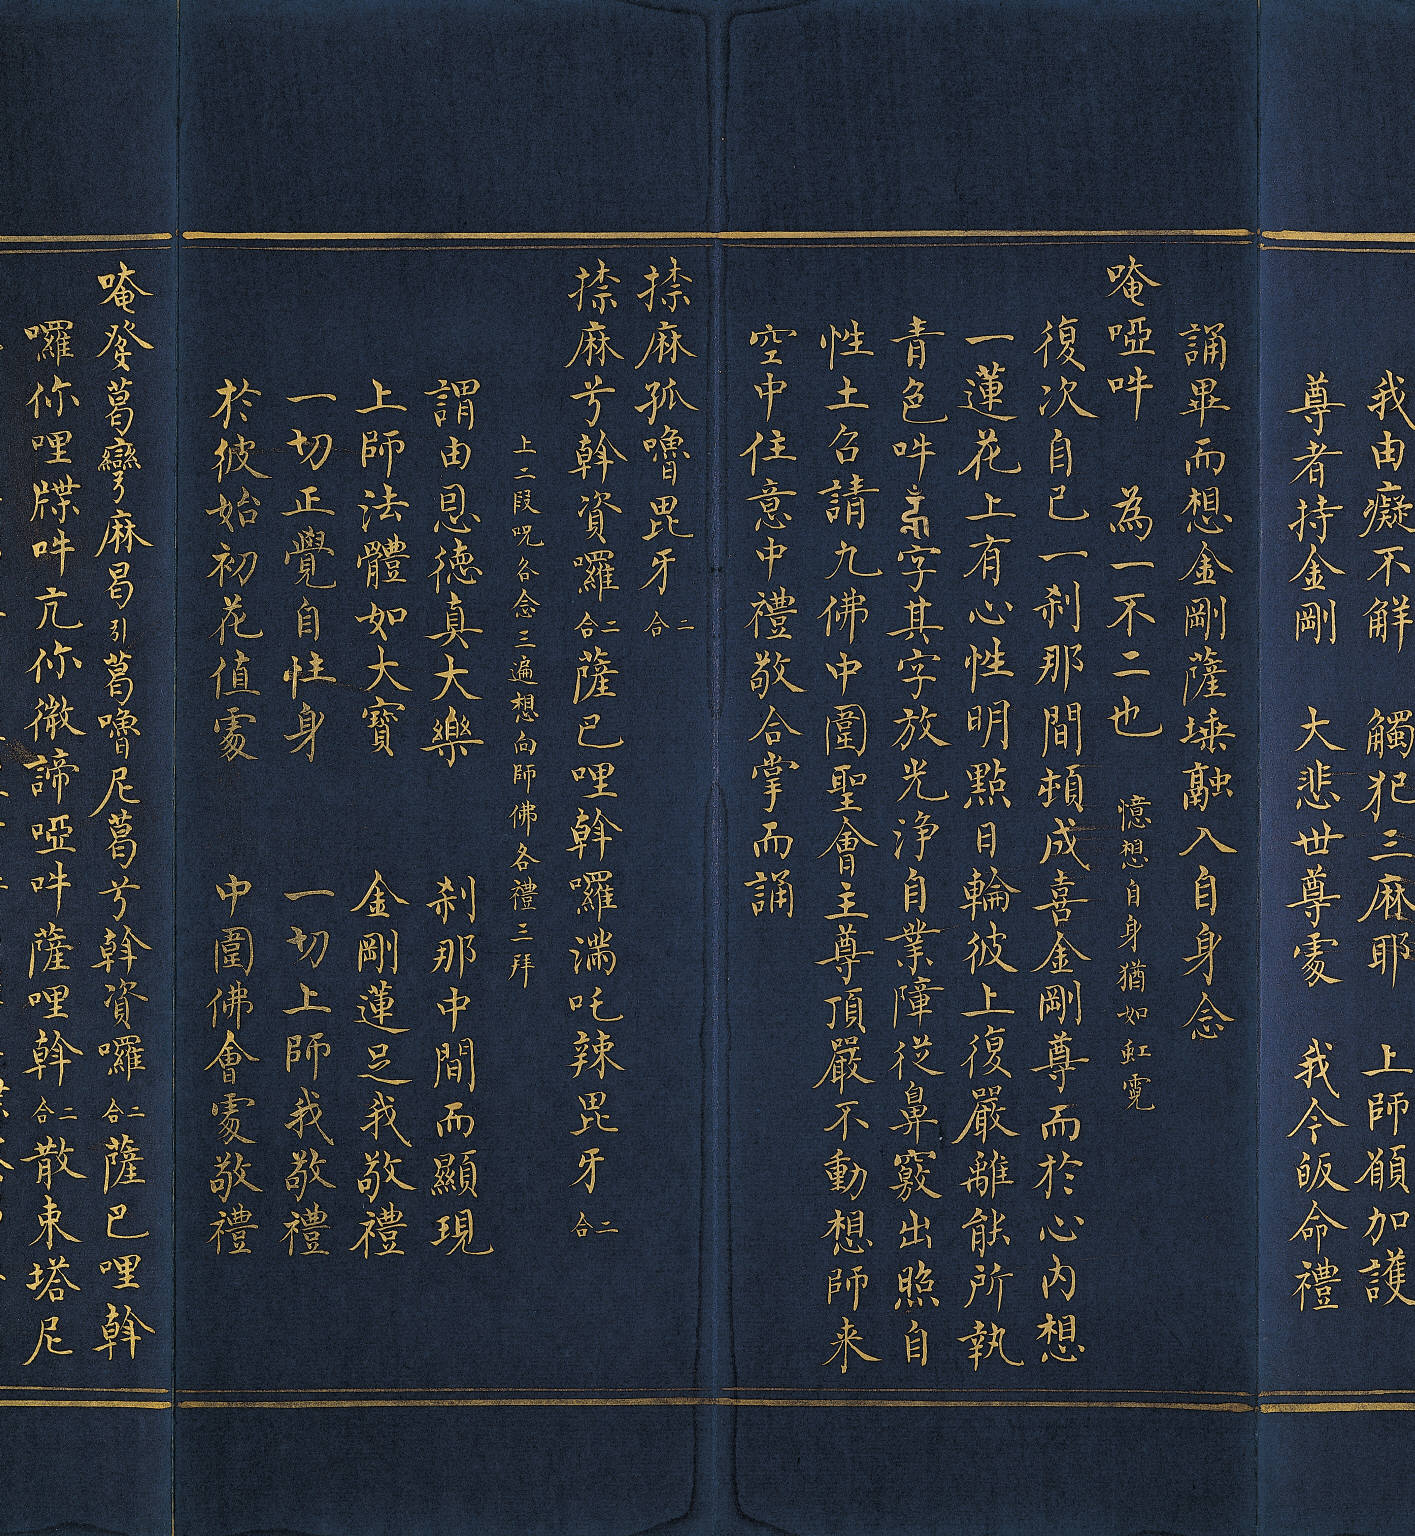 我由癡不解　觸犯三麻耶　上師願加護
尊者持金剛　大悲世尊處　我今皈命禮
誦畢而想金剛薩埵融入自身念
唵啞吽　為一不二也　憶想自身猶如虹霓
復次自己一刹那間頓成喜金剛尊而於心內想
一蓮花上有心性明點日輪彼上復嚴離能所執
青色吽字其字放光淨自業障從鼻竅出照自
性土召請九佛中圍聖會主尊頂嚴不動想師来
空中住意中禮敬合掌而誦
捺麻孤嚕毘牙二合
捺麻兮斡資囉二合薩巴哩斡囉滿吒辣毘牙二合
上二段呪各念三遍想向師佛各禮三拜
謂由恩徳真大樂　刹那中間而顯現
上師法體如大寶　金剛蓮足我敬禮
一切正覺自性身　一切上師我敬禮
於彼始初花值處　中圍佛會處敬禮
唵癹葛彎麻曷引葛嚕尼葛兮斡資囉二合薩巴哩斡
囉你哩牒吽亢你微諦啞吽薩哩斡二合散東塔尼